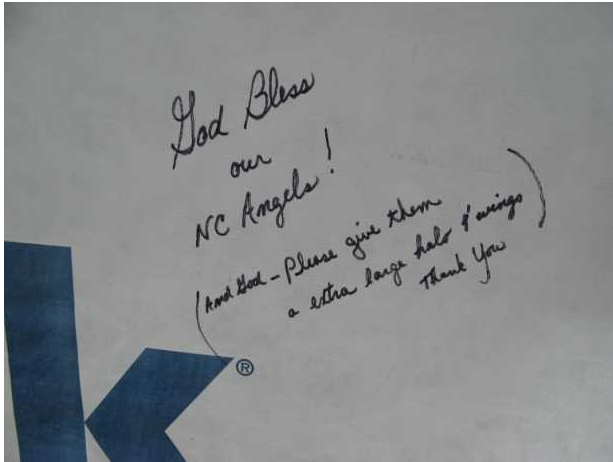 God Bless
our
NC Angels!
(And God - Please give them
a extra large halo & wings)
Thank You
k®